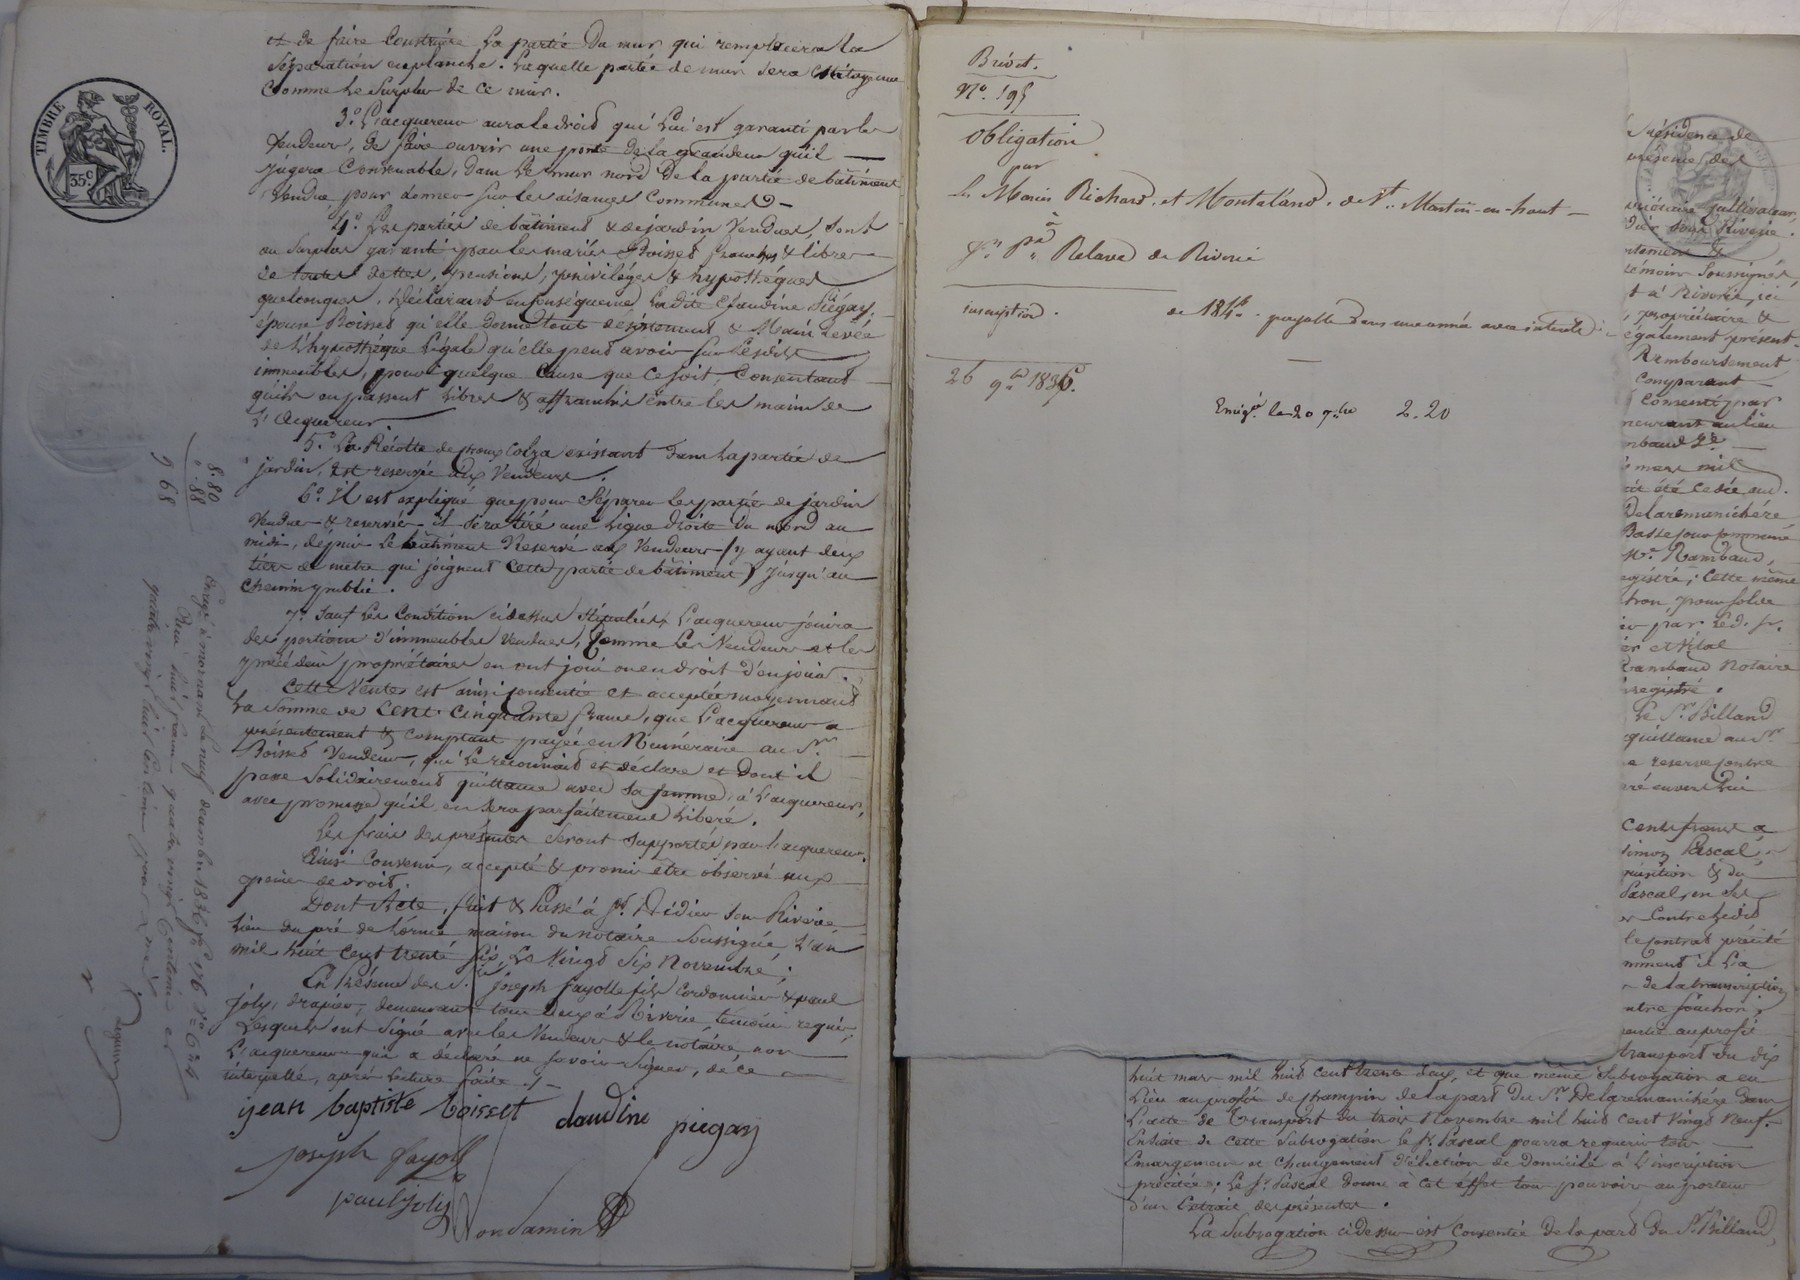 et de faire Construire La partie Du mur qui remplacera la
Séparation en planche. Laquelle partie de mur sera mitoyenne
Comme le Surplus de ce mur.
3.o L'acquereur aura le droit qui Lui est garanti par le
Vendeur, De faire ouvrir une porte De la grandeur qu'il
jugera Convenable, Dans Le mur nord De la partie de bâtiment
Vendue pour donner Sur les aisances Communes
4.o Les parties de bâtiment & de jardin Vendues, Sont
au Surplus garanti par les mariés Boisset franches & libres
de toutes dettes, pensions, privilèges & hypothèques
quelconques, Déclarant en Conséquence Ladite Claudine Piégay
épouse Boisset qu'elle Donne tout désistement & Main Levée
de L'hypothèque Légale qu'elle peut avoir Sur Lesdits
immeubles, pour quelque Cause que ce soit, Consentant
qu'ils en passent Libres & affranchis entre les mains de
L'Acquereur.
5.o La Récolte de choux Colza existant Dans la partie de
jardin, Est reservée aux Vendeurs.
6.o Il est expliqué que pour Séparer les parties de jardin
Vendue & reservée il sera tiré une Ligne droite Du nord au
midi, depuis Le bâtiment Reservé aux Vendeurs (y ayant deux
tiers de metre qui joignent Cette partie de bâtiment) jusqu'au
Chemin public.
7.o Sauf Les Conditions cidessus Stipulées L'acquereur jouira
des portions d'immeubles Vendues, Comme Les Vendeurs et les
précédents propriétaires en ont joui ou eu droit d'en jouir.
Cette Vente est ainsi consentie et acceptée moyennant
La Somme de Cent Cinquante francs, que L'acquereur a
présentement & comptant payée en Numéraire au Sr.
Boisset Vendeur, qui Le reconnait et déclare et Dont il
passe Solidairement quittance avec Sa femme, à L'acquereur,
avec promesse qu'il en Sera parfaitement Libéré.
Les frais des présentes Seront Supportés par L'acquereur.
Ainsi Convenu, accepté & promis être observé aux
peines de droit.
Dont Acte, fait & Passé à St. Didier Sous Riverie
Lieu du pré de Lorme maison du notaire Soussigné L'an
mil huit Cent trente Six, Le Vingt Six Novembre;
En Présence des Srs. joseph fayolle fils Cordonnier & paul
joly, drapier, demeurant tous deux à Riverie temoins requis
Lesquels ont Signé avec les Vendeurs & le notaire non
L'acquereur qui a déclaré ne Savoir Signer, de ce
interpellé, après Lecture faite./.
jean baptiste boisset claudine piegay
joseph fayolle
paul joly
Condamin
TIMBRE ROYAL.
35.c
8.80
88
9 68
Enregé à mornant le neuf décembre 1836 fo. 176
Reçu huit francs quatre vingt Centimes et
quatre vingt huit Centimes pour
Brévet.
No. 195
Obligation
par
Les Mariés Richard, et Montaland, de St. Martin-en-haut
à
Relave de Riverie
inscription.
de 184f. payable Dans une année avec intérêts
26 9bre 1836.
Enregé. le 20 9bre 2.20
Résidence de
présence des
Sous Riverie.
témoins Soussignés
à Riverie, ici
propriétaire &
également présent.
Remboursement
Comparant
Consenti par
demeurant au lieu
mars mil
ait été cedée au
Delaromanichère
Basse Sous Commune
Me. Rambaud,
enregistré; Cette même
pour Solde
par Led. Sr.
et Vital
Rambaud Notaire
enregistré.
Le Sr. Billand
quittance au Sr.
reserve contre
envers Lui
Cent francs à
Simon Pascal,
& du
Pascal, en Ses
Contre ledit
le Contrat précité
de la transcription
contre
au profit
transport du dix
huit mars mil huit Cent trente deux, et que même Subrogation a eu
Lieu au profit de champrin de la part du Sr. Delaromanichère Dans
L'acte de Transport du trois Novembre mil huit Cent Vingt Neuf.
Ensuite de cette Subrogation le Sr. Pascal pourra requerir tous
Emargemens et Changement d'élection de Domicile à L'inscription
précitée; Le Sr. Pascal Donne à Cet effet tous pouvoirs au porteur
D'un Extrait des présentes.
La Subrogation cidessus est Consentie De la part Du Sr. Billand,